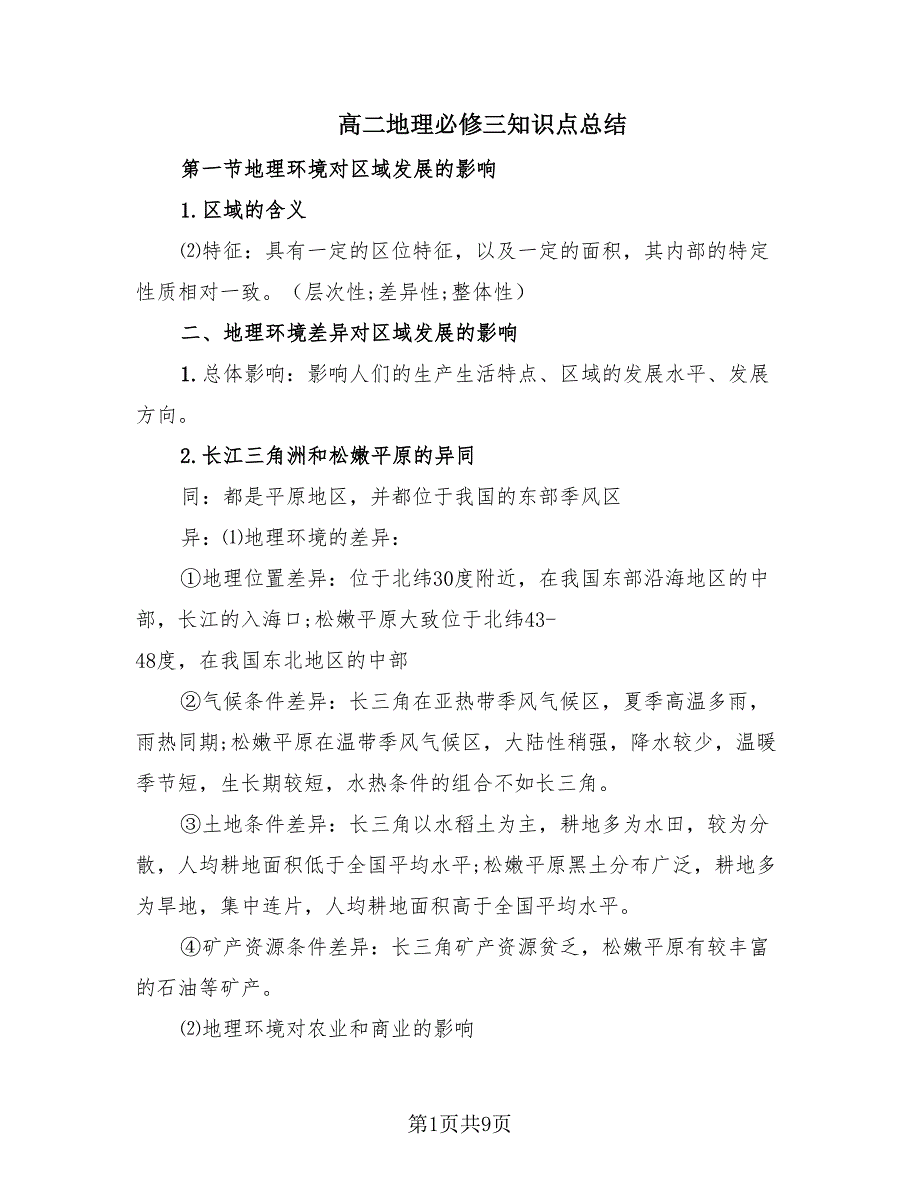 高二地理必修三知识点总结
第一节地理环境对区域发展的影响
1.区域的含义
⑵特征：具有一定的区位特征，以及一定的面积，其内部的特定
性质相对一致。（层次性;差异性;整体性）
二、地理环境差异对区域发展的影响
1.总体影响：影响人们的生产生活特点、区域的发展水平、发展
方向。
2.长江三角洲和松嫩平原的异同
同：都是平原地区，并都位于我国的东部季风区
异：⑴地理环境的差异：
①地理位置差异：位于北纬30度附近，在我国东部沿海地区的中
部，长江的入海口;松嫩平原大致位于北纬43-
48度，在我国东北地区的中部
②气候条件差异：长三角在亚热带季风气候区，夏季高温多雨，
雨热同期;松嫩平原在温带季风气候区，大陆性稍强，降水较少，温暖
季节短，生长期较短，水热条件的组合不如长三角。
③土地条件差异：长三角以水稻土为主，耕地多为水田，较为分
散，人均耕地面积低于全国平均水平;松嫩平原黑土分布广泛，耕地多
为旱地，集中连片，人均耕地面积高于全国平均水平。
④矿产资源条件差异：长三角矿产资源贫乏，松嫩平原有较丰富
的石油等矿产。
⑵地理环境对农业和商业的影响
第1页共9页